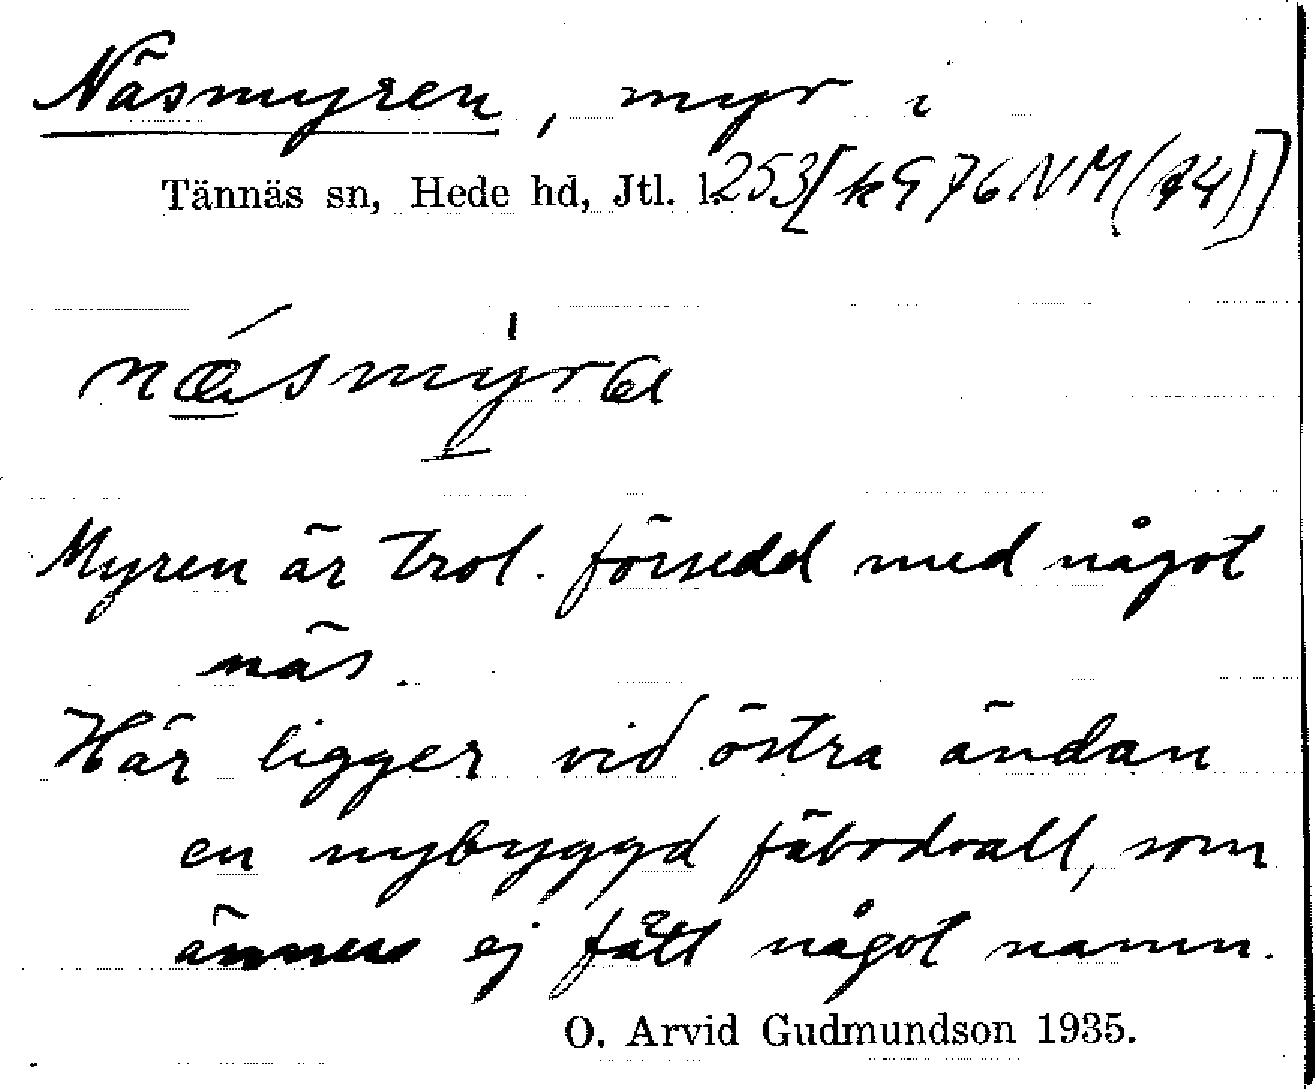 Näsmyren, myr i
Tännäs sn, Hede hd, Jtl. l. 253 [k 976 NM (74)]
næ´smy̱ra
Myren är trol. försedd med något
näs.
Här ligger vid östra ändan
en nybyggd fäbodvall, som
ännu ej fått något namn.
O. Arvid Gudmundson 1935.